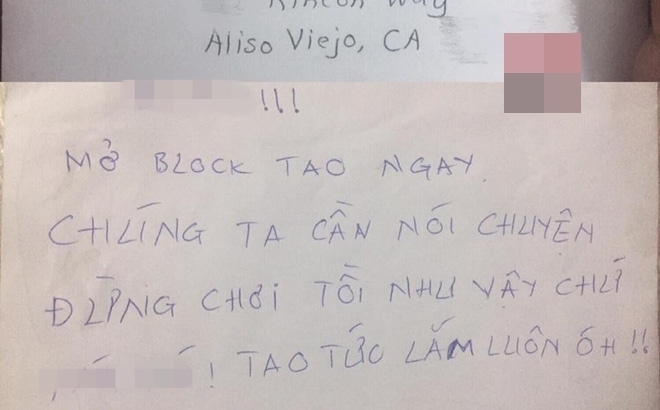 Rincon Way
Aliso Viejo, CA
!!!
MỞ BLOCK TAO NGAY.
CHÚNG TA CẦN NÓI CHUYỆN
ĐỪNG CHƠI TỒI NHƯ VẬY CHỨ
! TAO TỨC LẮM LUÔN ÓH !!